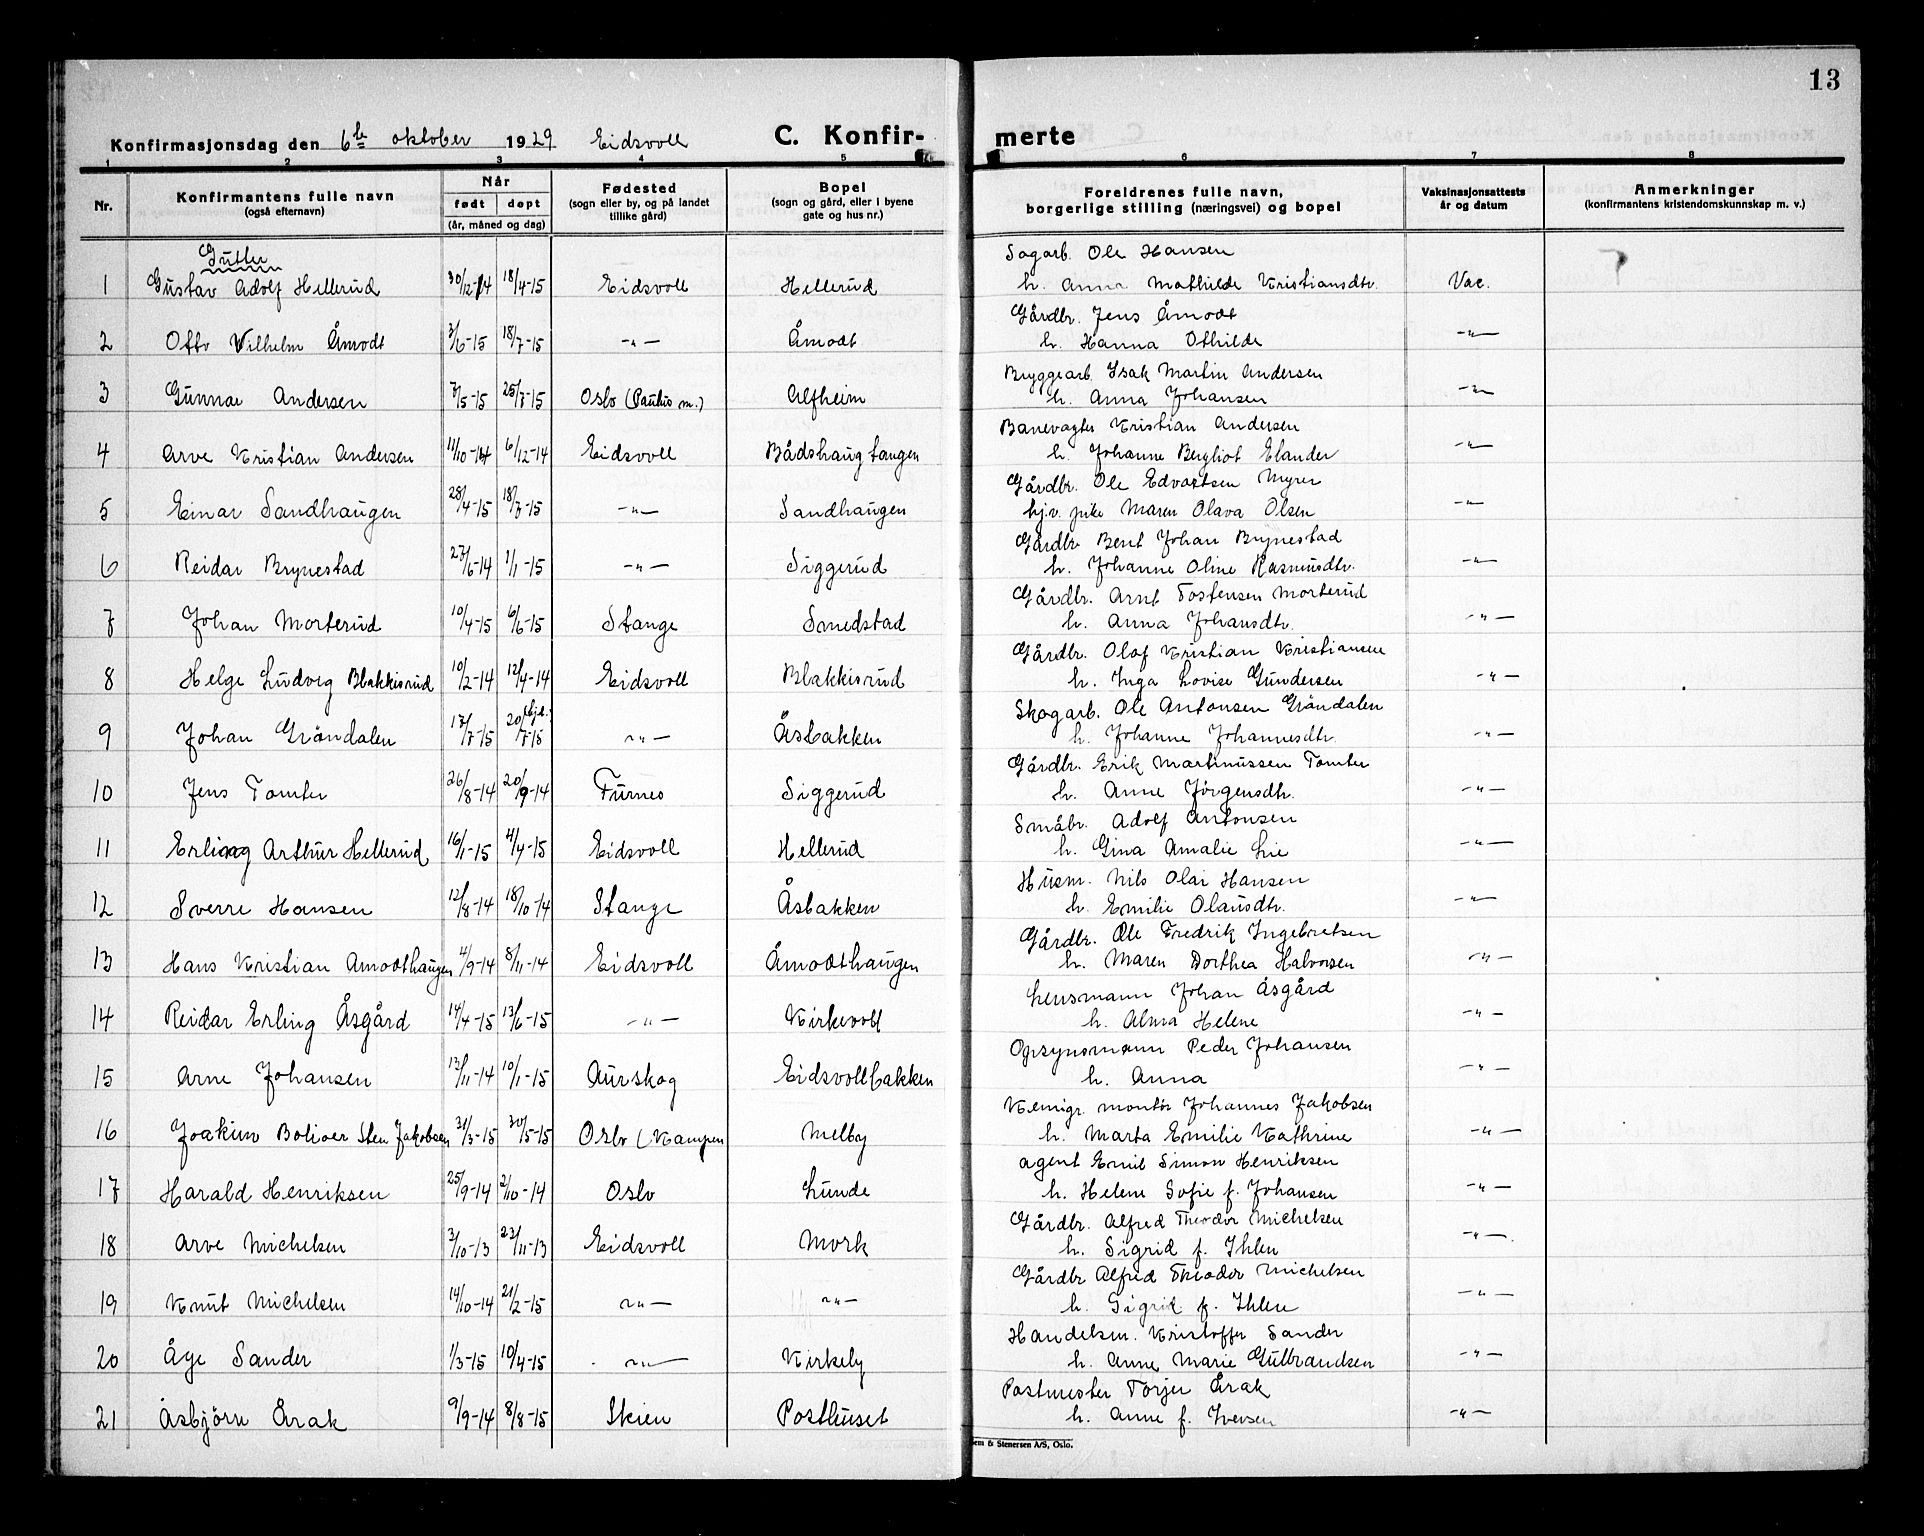 13
Konfirmasjonsdag den 6te oktober 1929 Eidsvoll C. Konfir- merte
1 2 3 4 5 6 7 8
Nr. Konfirmantens fulle navn (også efternavn) Når født døpt (år, måned og dag) Fødested (sogn eller by, og på landet tillike gård) Bopel (sogn og gård, eller i byene gate og hus nr.) Foreldrenes fulle navn, borgerlige stilling (næringsvei) og bopel Vaksinasjonsattests år og datum Anmerkninger (konfirmantens kristendomskunnskap m. v.)
Gutter
Sagarb. Ole Hansen
1 Gustav Adolf Hellerud 30/12-14 18/4-15 Eidsvoll Hellerud h. Anna Mathilde Kristiansdtr. Vac.
Gårdbr. Jens Åmodt
2 Otto Vilhelm Åmodt 3/6-15 18/7-15 -"- Åmodt h. Hanna Othilde -"-
Bryggearb. Isak Martin Andersen
3 Gunnar Andersen 7/5-15 25/7-15 Oslo (Paulus m.) Alfheim h. Anna Johansen -"-
Banevogter Kristian Andersen
4 Arve Kristian Andersen 11/10-14 6/12-14 Eidsvoll Bådshaugtangen h. Johanne Bergliot Elander -"-
Gårdbr. Ole Edvartsen Myrer
5 Einar Sandhaugen 28/4-15 18/7-15 -"- Sandhaugen hj.v. pike Maren Olava Olsen -"-
Gårdbr. Bent Johan Brynestad
6 Reidar Brynestad 27/6-14 1/1-15 -"- Siggerud h. Johanne Oline Rasmusdtr. -"-
Gårdbr. Arnt Tostensen Morterud
7 Johan Morterud 10/4-15 6/6-15 Stange Smedstad h. Anna Johansdtr. -"-
Gårdbr. Olaf Kristian Kristiansen
8 Helge Ludvig Blakkisrud 10/2-14 12/4-14 Eidsvoll Blakkisrud h. Inga Lovise Gundersen -"-
Skogarb. Ole Antonsen Gröndalen
9 Johan Gröndalen 17/7-15 20/7-15 (hj.d.) -"- Åsbakken h. Johanne Johannesdtr. -"-
Gårdbr. Erik Martinussen Tomter
10 Jens Tomter 26/8-14 20/9-14 Furnes Siggerud h. Anne Jörgensdtr. -"-
Småbr. Adolf Antonsen
11 Erling Arthur Hellerud 16/1-15 4/4-15 Eidsvoll Hellerud h. Gina Amalie Lie -"-
Husm. Nils Olai Hansen
12 Sverre Hansen 12/8-14 18/10-14 Stange Åsbakken h. Emilie Olausdtr. -"-
Gårdbr. Ole Fredrik Ingebretsen
13 Hans Kristian Amodthaugen 4/9-14 8/11-14 Eidsvoll Åmodthaugen h. Maren Dorthea Halvorsen -"-
Lensmann Johan Åsgård
14 Reidar Erling Åsgård 14/4-15 13/6-15 -"- Kirkevoll h. Alma Helene -"-
Opsynsmann Peder Johansen
15 Arne Johansen 13/11-14 10/1-15 Aurskog Eidsvollbakken h. Anna -"-
Kemigr. montör Johannes Jakobsen
16 Joakim Sten Jakobsen 31/3-15 30/5-15 Oslo (Kampen Melby h. Marta Emilie Kathrine -"-
Agent Emil Simon Henriksen
17 Harald Henriksen 25/9-14 2/10-14 Oslo Lunde h. Helene Sofie f. Johansen -"-
Gårdbr. Alfred Theodor Michelsen
18 Arve Michelsen 3/10-13 23/11-13 Eidsvoll Mork h. Sigrid f. Ihlen -"-
Gårdbr Alfred Theodor Michelsen
19 Knut Michelsen 14/10-14 21/2-15 -"- -"- h. Sigrid f. Ihlen -"-
Handelsm. Kristoffer Sander
20 Åge Sander 1/3-15 10/4-15 -"- Kirkeby h. Anne Marie Gulbrandsen -"-
Postmester Torjer Årak
21 Asbjörn Årak 9/9-14 8/8-15 Skien Posthuset h. Anne f. Iversen -"-
em & Stenersen A/S, Oslo.